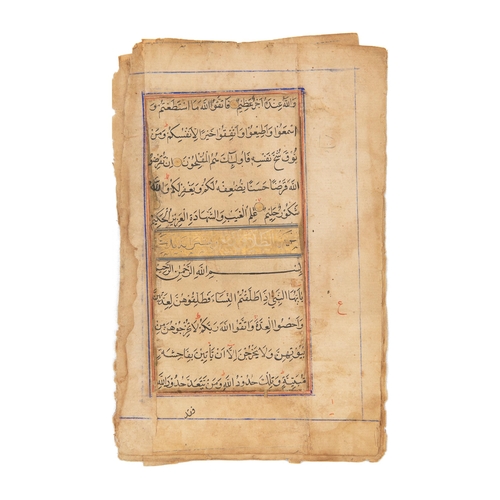 وَاللّٰهُ عِنْدَهُ أَجْرٌ عَظِيمٌ فَاتَّقُوا اللّٰهَ مَا اسْتَطَعْتُمْ وَ
اسْمَعُوا وَأَطِيعُوا وَأَنْفِقُوا خَيْرًا لِأَنْفُسِكُمْ وَمَنْ
يُوقَ شُحَّ نَفْسِهِ فَأُولٰئِكَ هُمُ الْمُفْلِحُونَ إِنْ تُقْرِضُوا
اللّٰهَ قَرْضًا حَسَنًا يُضٰعِفْهُ لَكُمْ وَيَغْفِرْ لَكُمْ وَاللّٰهُ
شَكُورٌ حَلِيمٌ عٰلِمُ الْغَيْبِ وَالشَّهَادَةِ الْعَزِيزُ الْحَكِيمُ
بِسْمِ اللّٰهِ الرَّحْمٰنِ الرَّحِيمِ
يٰأَيُّهَا النَّبِيُّ إِذَا طَلَّقْتُمُ النِّسَاءَ فَطَلِّقُوهُنَّ لِعِدَّتِهِنَّ
وَأَحْصُوا الْعِدَّةَ وَاتَّقُوا اللّٰهَ رَبَّكُمْ لَا تُخْرِجُوهُنَّ مِنْ
بُيُوتِهِنَّ وَلَا يَخْرُجْنَ إِلَّا أَنْ يَأْتِينَ بِفَاحِشَةٍ
مُبَيِّنَةٍ وَتِلْكَ حُدُودُ اللّٰهِ وَمَنْ يَتَعَدَّ حُدُودَ اللّٰهِ
فقد